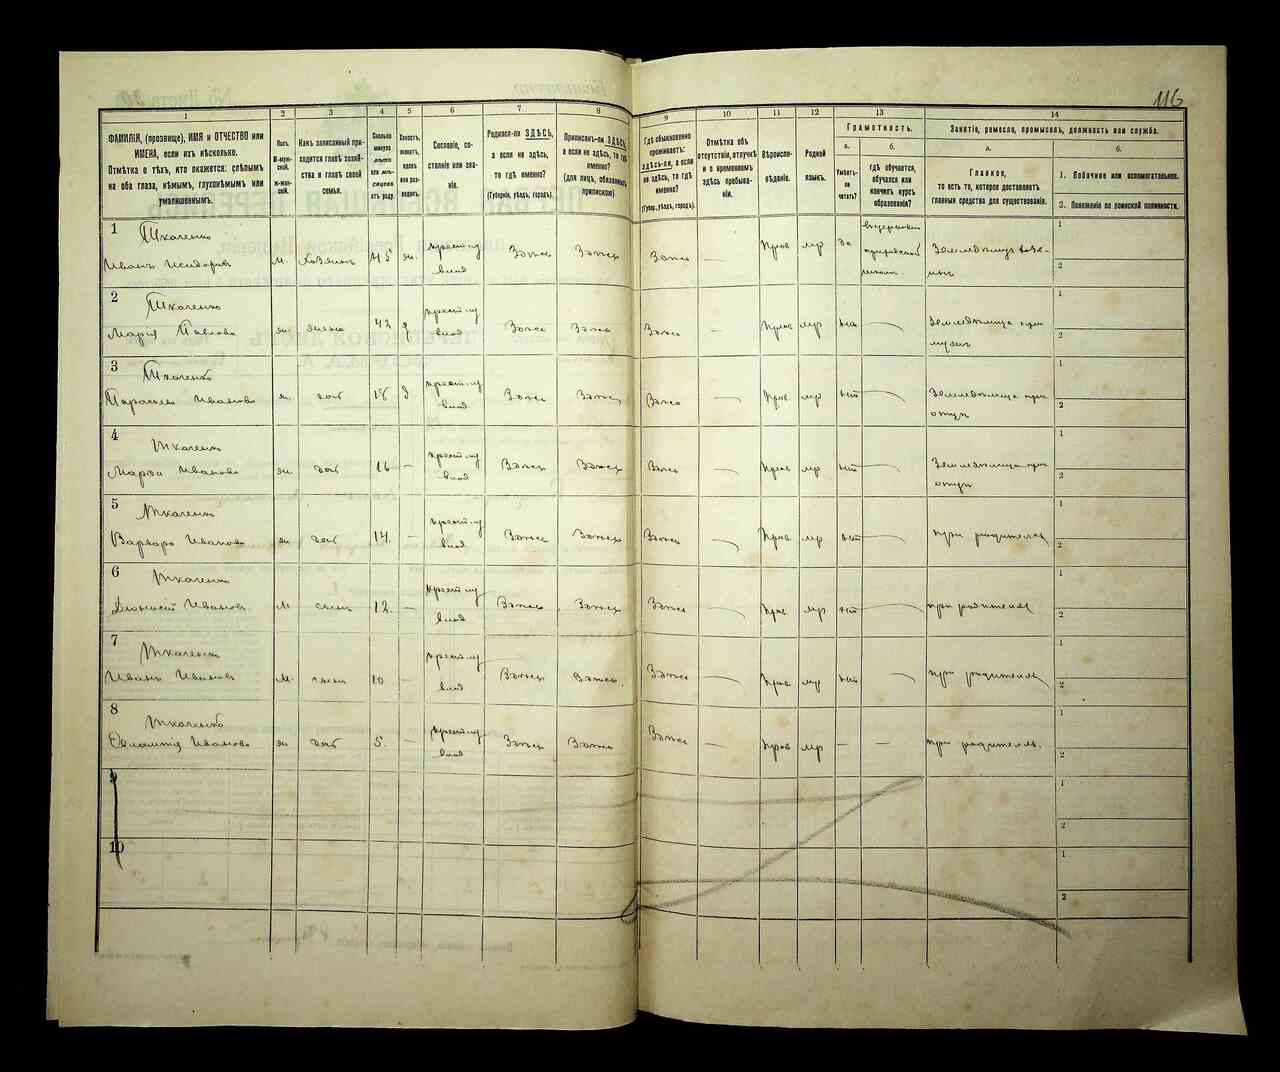 116
1
2
3
4
5
6
7
8
9
10
11
12
13
14
ФАМИЛІЯ, (прозвище), ИМЯ и ОТЧЕСТВО или
ИМЕНА, если ихъ нѣсколько.
Отмѣтка о тѣхъ, кто окажется: слѣпымъ
на оба глаза, нѣмымъ, глухонѣмымъ или
умалишеннымъ.
Полъ.
М-муж-
ской.
Ж-жен-
скій.
Какъ записанный при-
ходится главѣ хозяй-
ства и главѣ своей
семьи.
Сколько
минуло
лѣтъ
или мѣ-
сяцевъ
отъ роду.
Холостъ,
женатъ,
вдовъ
или раз-
веденъ.
Сословіе, со-
стояніе или зва-
ніе.
Родился-ли ЗДѢСЬ,
а если не здѣсь,
то гдѣ именно?
(Губернія, уѣздъ, городъ).
Приписанъ-ли ЗДѢСЬ,
а если не здѣсь, то гдѣ
именно?
(для лицъ, обязанныхъ
припискою)
Гдѣ обыкновенно
проживаетъ:
здѣсь-ли, а если
не здѣсь, то гдѣ
именно?
(Губер., уѣздъ, городъ).
Отмѣтка объ
отсутствіи, отлучкѣ
и о временномъ
здѣсь пребыва-
ніи.
Вѣроиспо-
вѣданіе.
Родной
языкъ.
Грамотность.
а.
Умѣетъ-
ли
читать?
б.
гдѣ обучается,
обучался или
кончилъ курсъ
образованія?
Занятіе, ремесло, промыселъ, должность или служба.
а.
Главное,
то есть то, которое доставляетъ
главныя средства для существованія.
б.
1. Побочное или вспомогательное.
2. Положеніе по воинской повинности.
1 Ткаченко
Иванъ Исидоровъ м. Хозяинъ 45 ж. крест. изъ влад Здѣсь Здѣсь Здѣсь — Прав мр да
Земледѣлецъ хозя-
инъ
1
2
2 Ткаченко
Мария Павлова ж. жена 42 з крест. изъ влад Здѣсь Здѣсь Здѣсь — Прав мр нѣт —
Земледѣлица при
мужѣ
1
2
3 Ткаченко
Параскева Иванова ж. доч 18 крест. изъ влад Здѣсь Здѣсь Здѣсь — Прав мр нѣт —
Земледѣлица при
отцѣ
1
2
4 Ткаченко
Марѳа Иванова ж. доч 16 — крест. изъ влад Здѣсь Здѣсь Здѣсь — Прав мр нѣт —
Земледѣлица при
отцѣ
1
2
5 Ткаченко
Варвара Иванова ж. доч 14. — крест. изъ влад Здѣсь Здѣсь Здѣсь — Прав мр нѣт — при родителяхъ
1
2
6 Ткаченко
Діонисій Ивановъ м сынъ 12. — крест. изъ влад Здѣсь Здѣсь Здѣсь — Прав мр нѣт — при родителяхъ
1
2
7 Ткаченко
Иванъ Ивановъ м. сынъ 10 — крест. изъ влад Здѣсь Здѣсь Здѣсь — Прав мр нѣт — при родителяхъ
1
2
8 Ткаченко
Евлампія Иванова ж доч 5. — крест. изъ влад Здѣсь Здѣсь Здѣсь — Прав мр — — при родителяхъ.
1
2
9
1
2
10
1
2